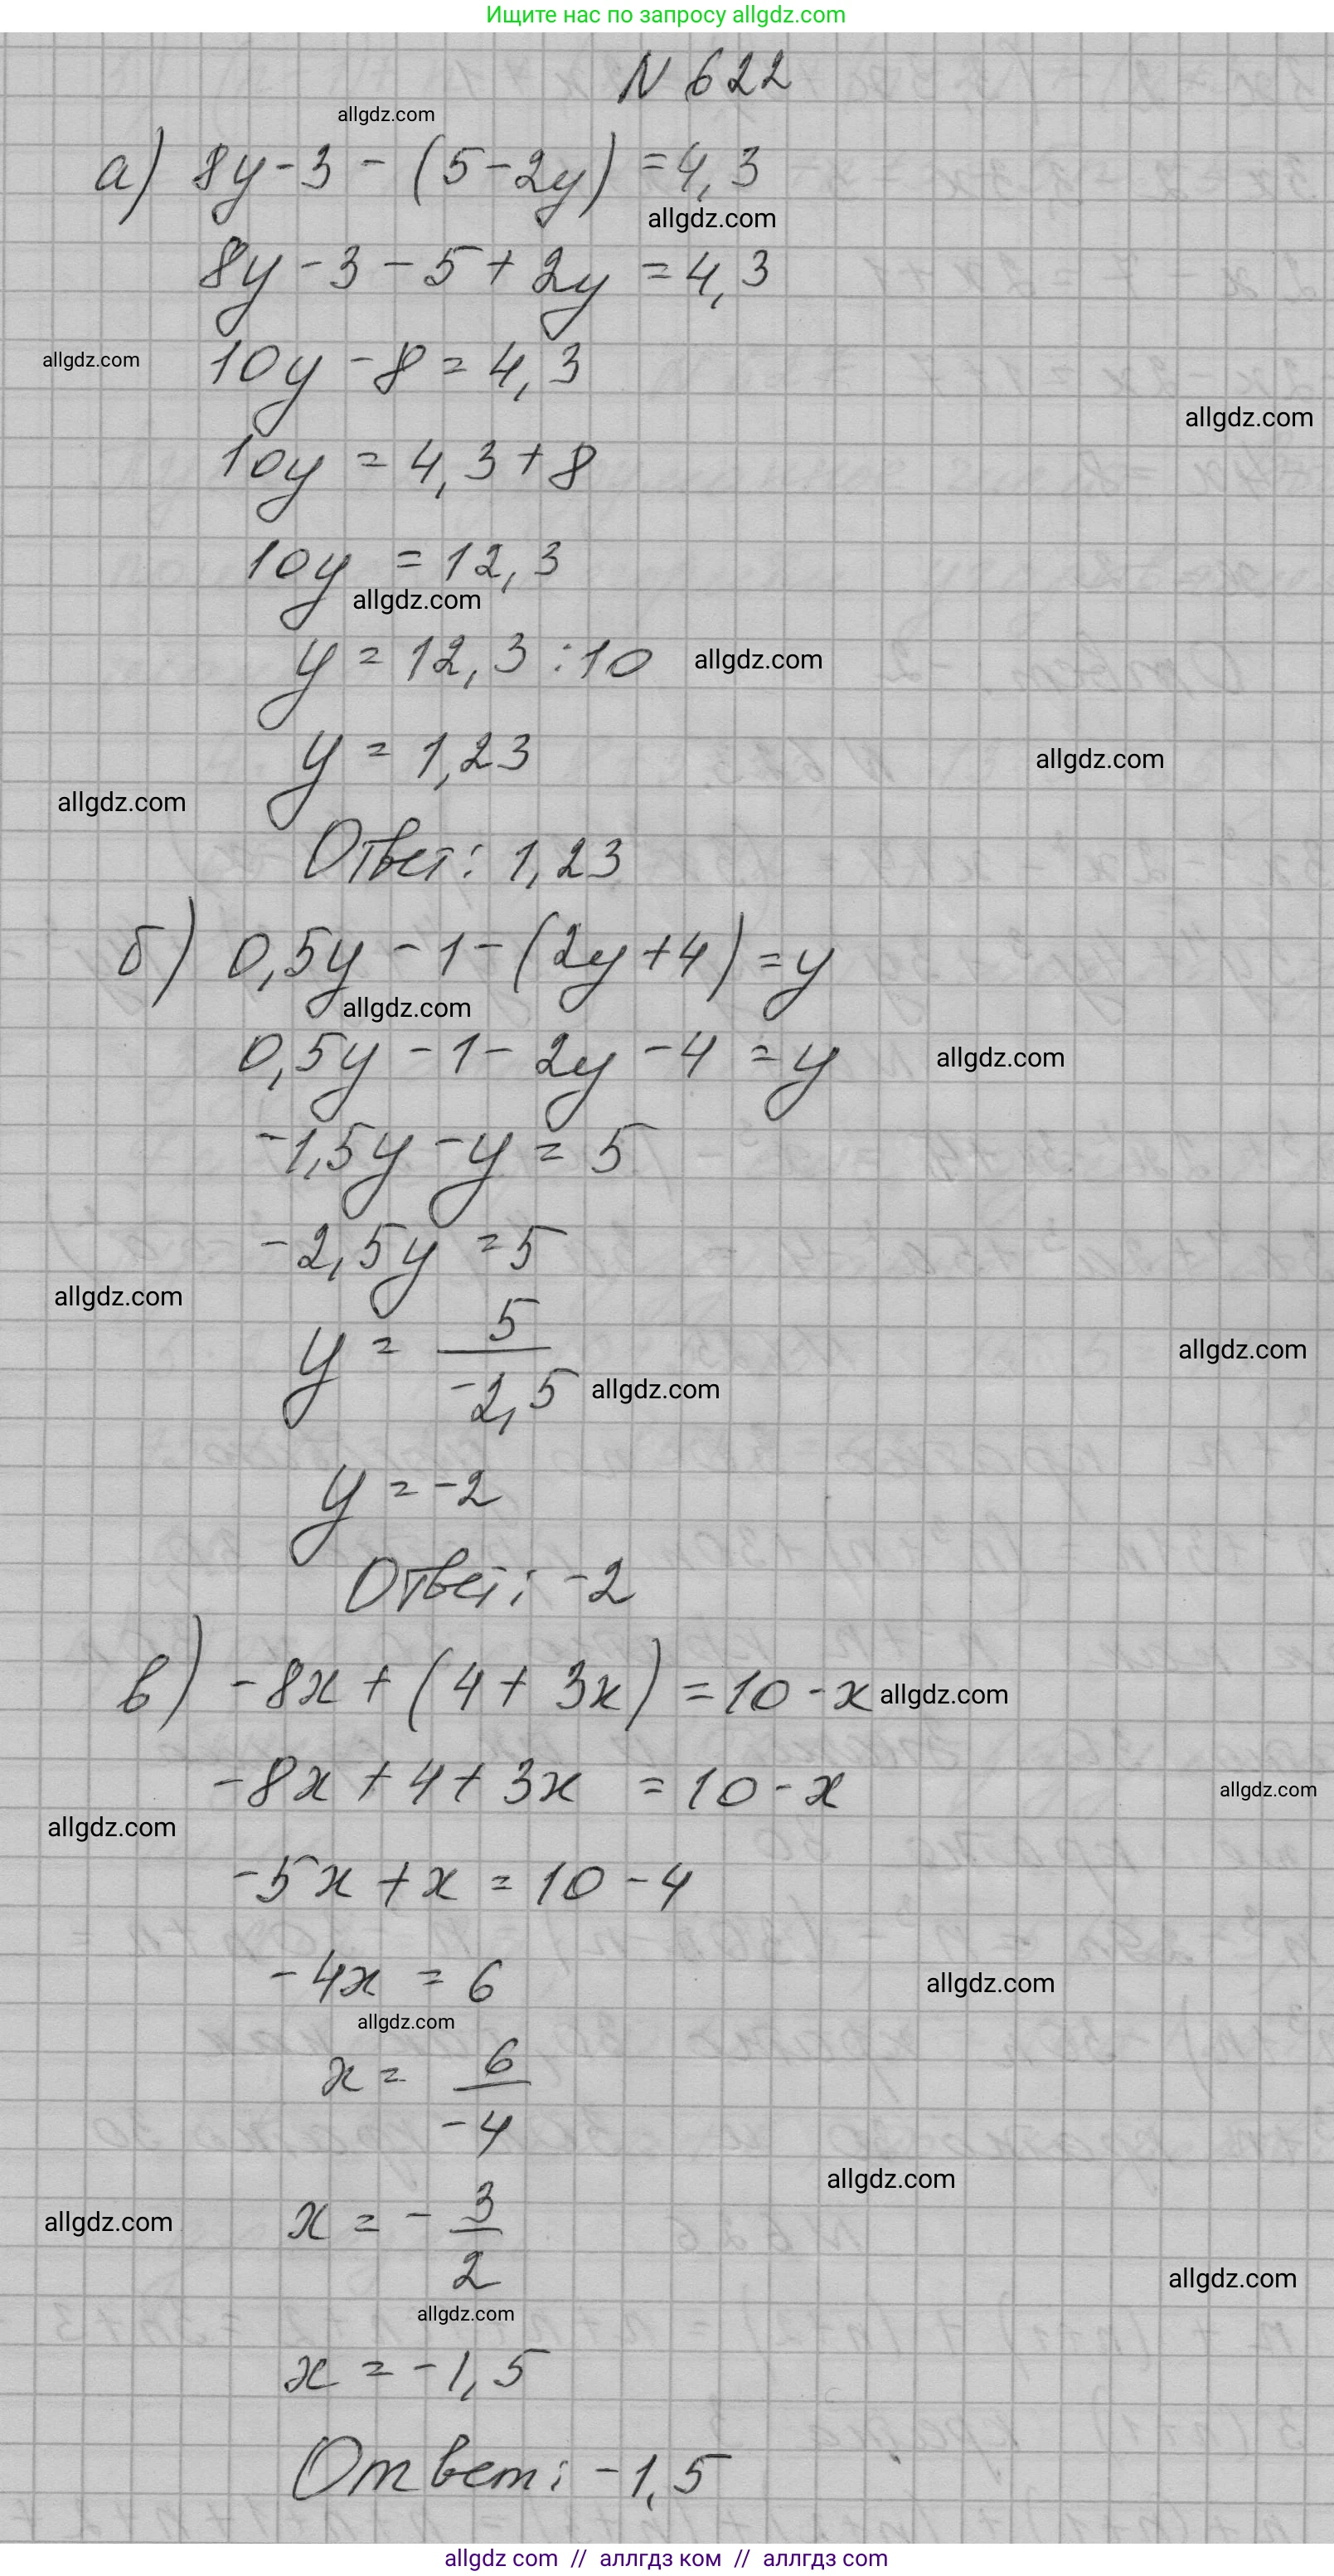 Ищите нас по запросу allgdz.com
N 622
allgdz.com
а) 8y - 3 - (5 - 2y) = 4,3
allgdz.com
8y - 3 - 5 + 2y = 4,3
allgdz.com
10y - 8 = 4,3
allgdz.com
10y = 4,3 + 8
10y = 12,3
allgdz.com
y = 12,3 : 10
allgdz.com
y = 1,23
allgdz.com
allgdz.com
Ответ: 1,23
б) 0,5y - 1 - (2y + 4) = y
allgdz.com
0,5y - 1 - 2y - 4 = y
allgdz.com
-1,5y - y = 5
-2,5y = 5
allgdz.com
y = 5 / -2,5
allgdz.com
allgdz.com
y = -2
Ответ: -2
в) -8x + (4 + 3x) = 10 - x
allgdz.com
-8x + 4 + 3x = 10 - x
allgdz.com
allgdz.com
-5x + x = 10 - 4
-4x = 6
allgdz.com
allgdz.com
x = 6 / -4
allgdz.com
x = - 3 / 2
allgdz.com
allgdz.com
allgdz.com
x = -1,5
Ответ: -1,5
allgdz com // аллгдз ком // аллгдз com